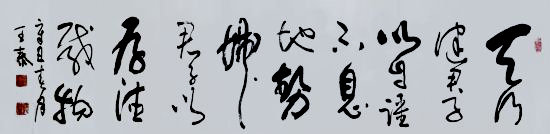 天行
健君子
以自强
不息
地勢
坤
君子以
厚德
載物
辛丑春月
王泰